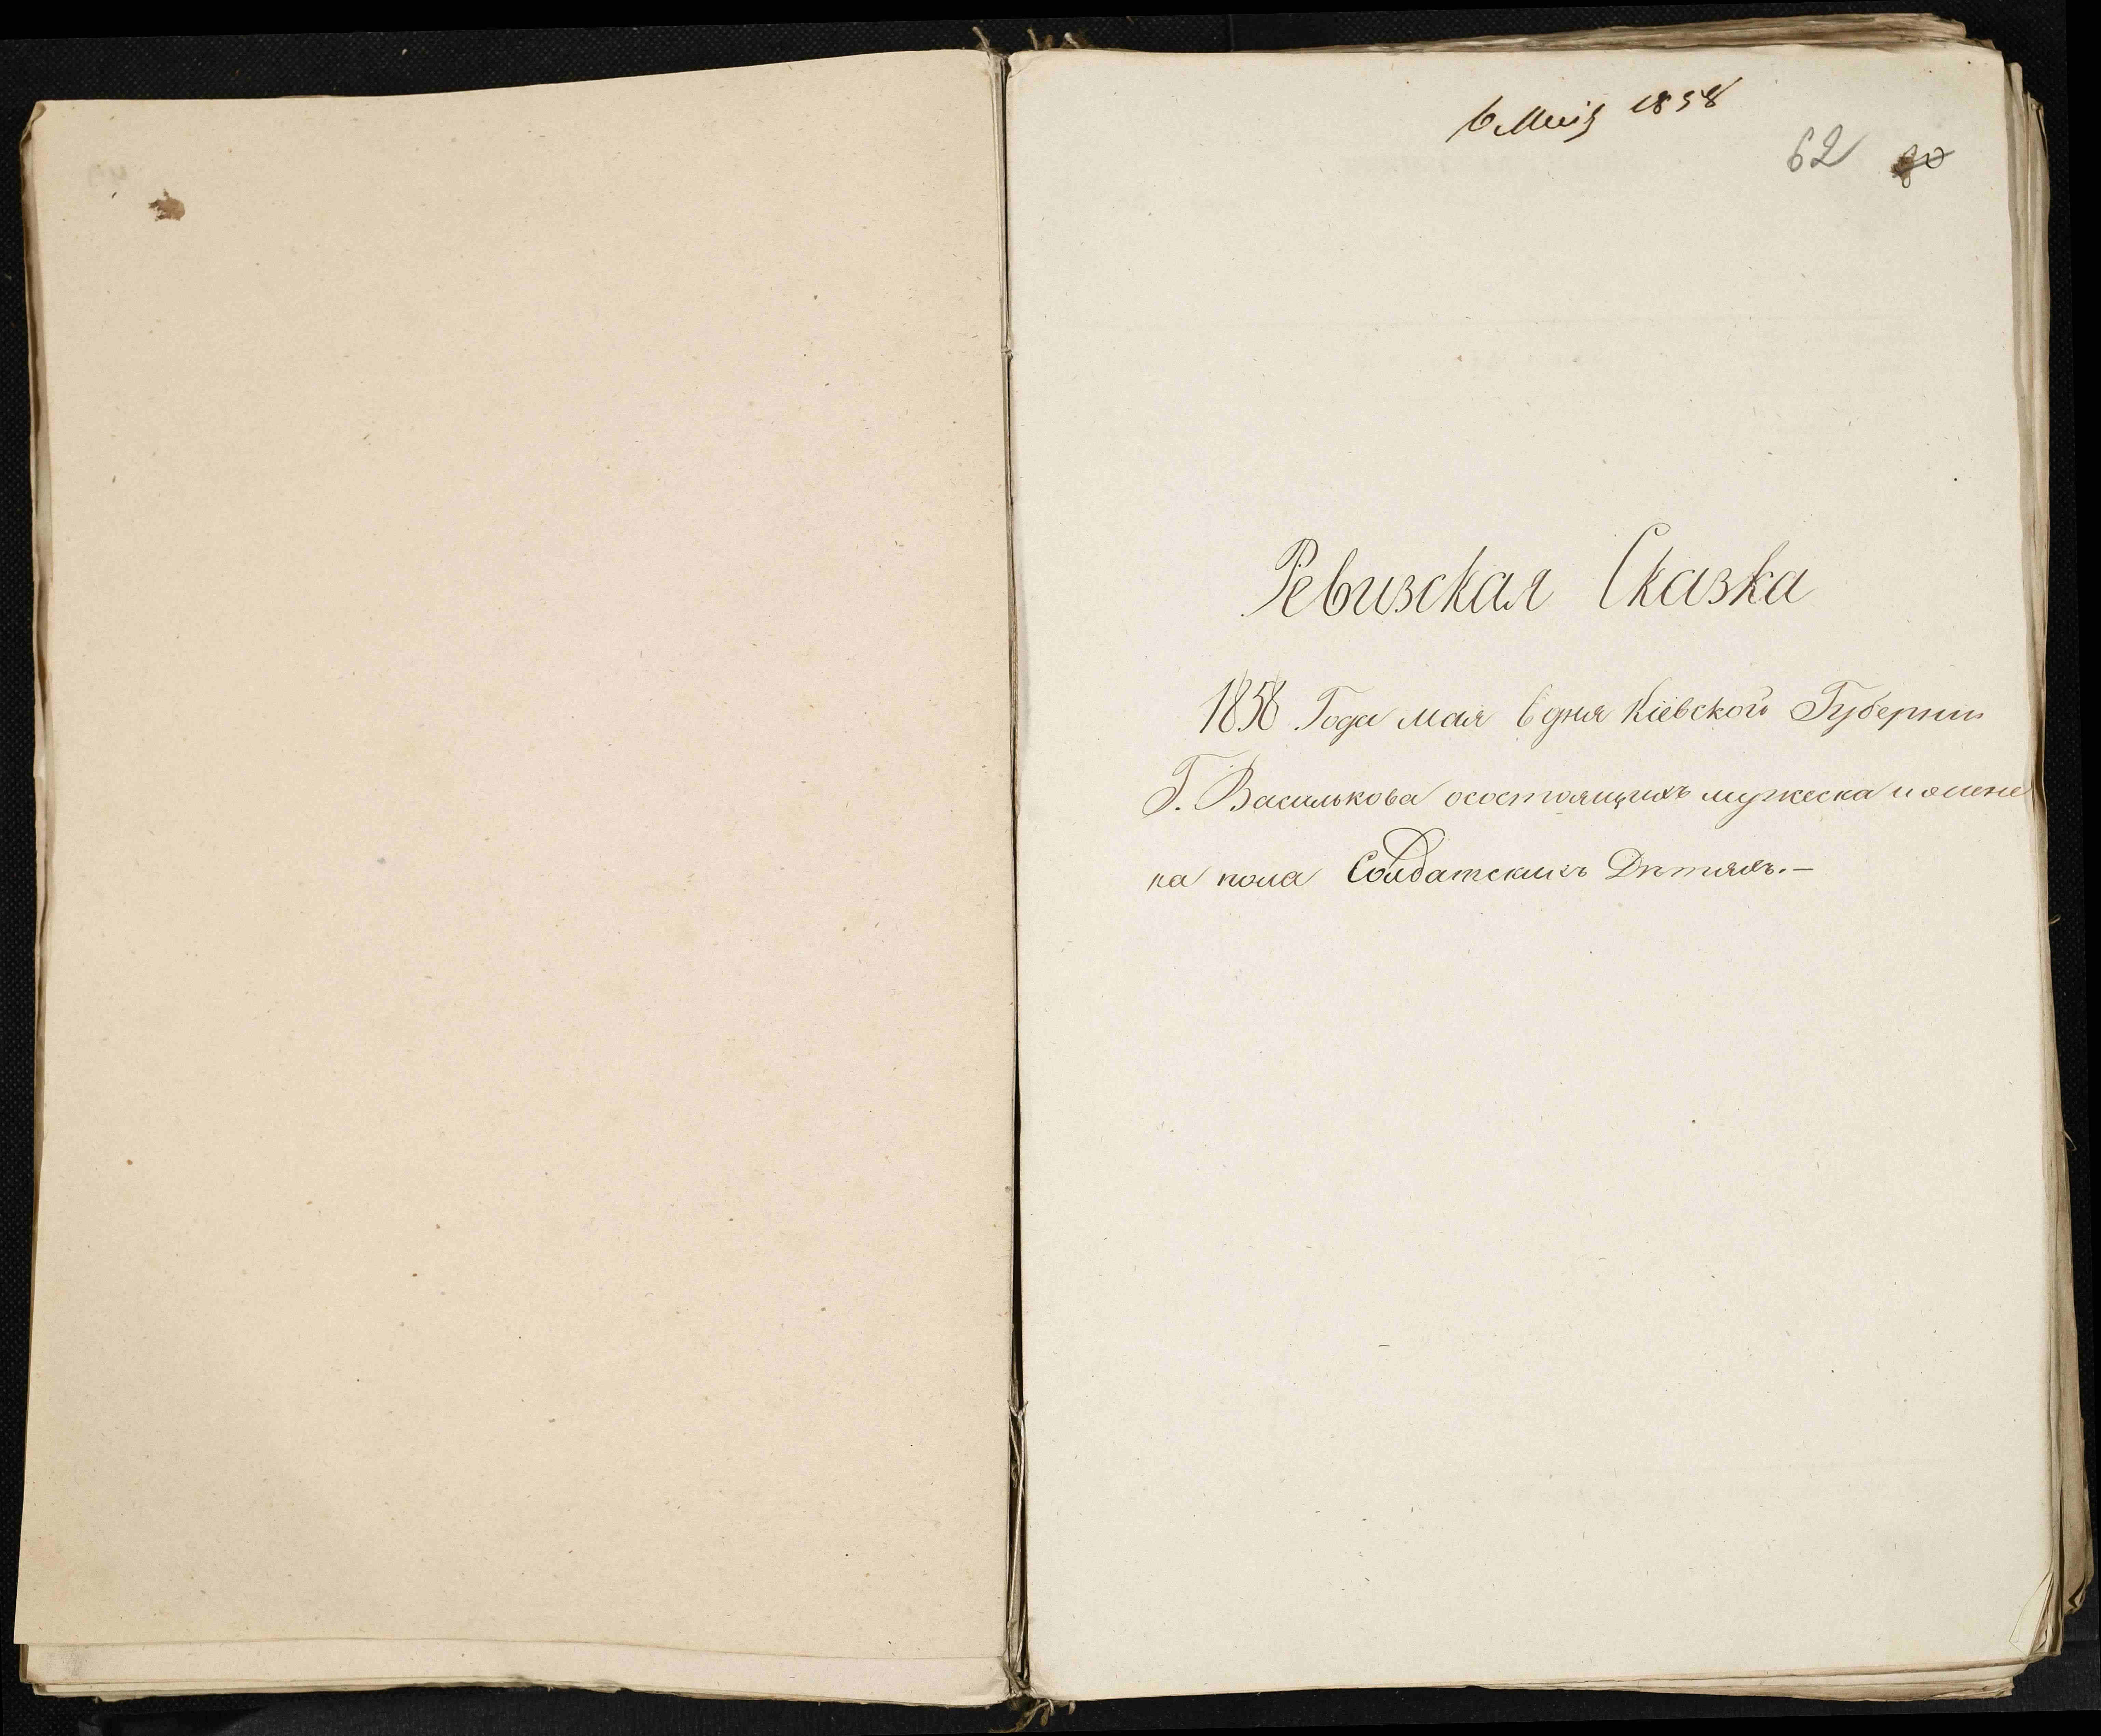 6 Мая 1858
62
Ревизская Сказка
1858 Года мая 6 дня Кіевской Губерніи
Г. Василькова осостоящихъ мужеска и женс
ка пола Солдатскихъ Дѣтяхъ.—